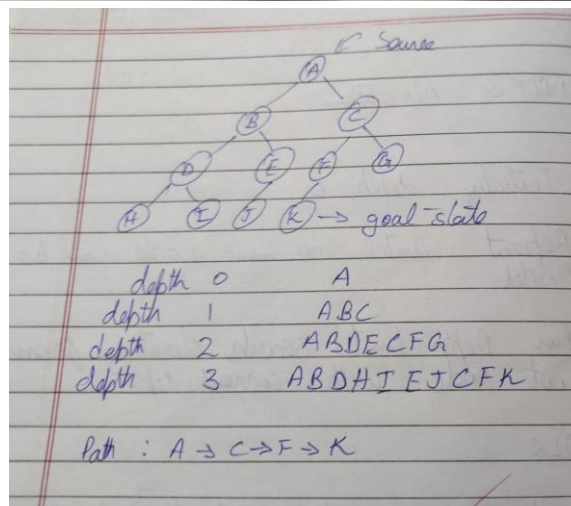 Source
A
B C
D E F G
H I J K → goal state
depth 0 A
depth 1 ABC
depth 2 ABDECFG
depth 3 ABDHIEJCFK
Path : A → C → F → K